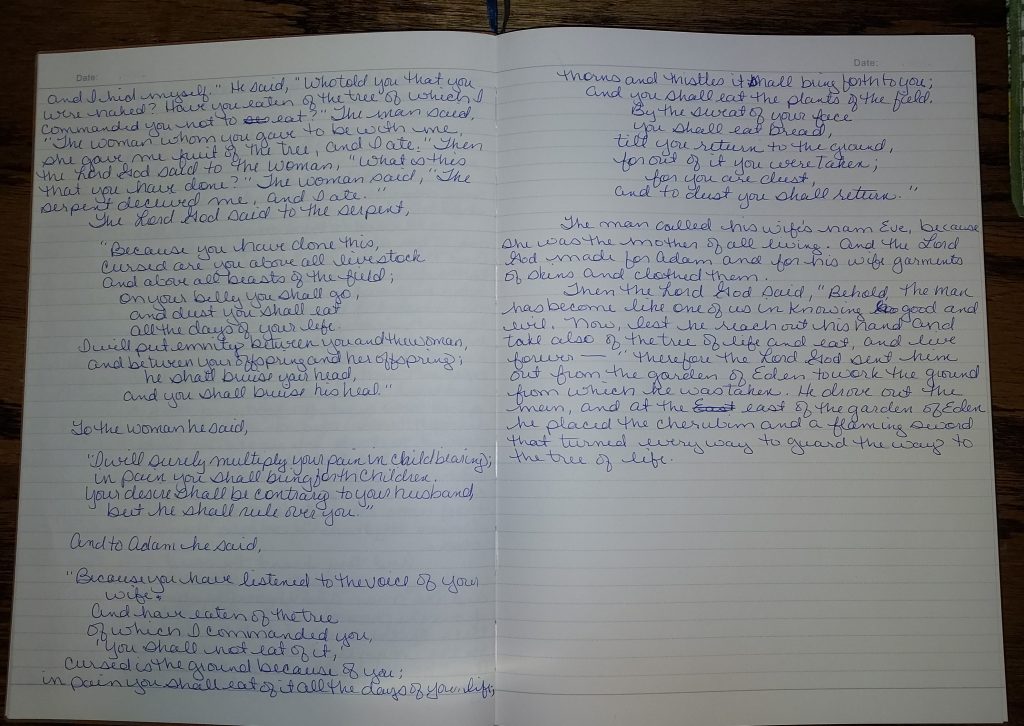 Date:
and I hid myself." He said, "Who told you that you
were naked? Have you eaten of the tree of which I
commanded you not to eat?" The man said,
"The woman whom you gave to be with me,
she gave me fruit of the tree, and I ate." Then
the Lord God said to the woman, "What is this
that you have done?" The woman said, "The
serpent deceived me, and I ate."
The Lord God said to the serpent,
"Because you have done this,
cursed are you above all livestock
and above all beasts of the field;
on your belly you shall go,
and dust you shall eat
all the days of your life.
I will put enmity between you and the woman,
and between your offspring and her offspring;
he shall bruise your head,
and you shall bruise his heal."
To the woman he said,
"I will surely multiply your pain in childbearing;
in pain you shall bring forth children.
Your desire shall be contrary to your husband,
but he shall rule over you."
And to Adam he said,
"Because you have listened to the voice of your
wife
and have eaten of the tree
of which I commanded you,
'You shall not eat of it,'
cursed is the ground because of you;
in pain you shall eat of it all the days of your life;
Date:
thorns and thistles it shall bring forth to you;
and you shall eat the plants of the field.
By the sweat of your face
you shall eat bread,
till you return to the ground,
for out of it you were taken;
for you are dust,
and to dust you shall return."
The man called his wife's nam Eve, because
she was the mother of all living. And the Lord
God made for Adam and for his wife garments
of skins and clothed them.
Then the Lord God said, "Behold, the man
has become like one of us in knowing good and
evil. Now, lest he reach out his hand and
take also of the tree of life and eat, and live
forever — " therefore the Lord God sent him
out from the garden of Eden to work the ground
from which he was taken. He drove out the
man, and at the East east of the garden of Eden
he placed the cherubim and a flaming sword
that turned every way to guard the way to
the tree of life.